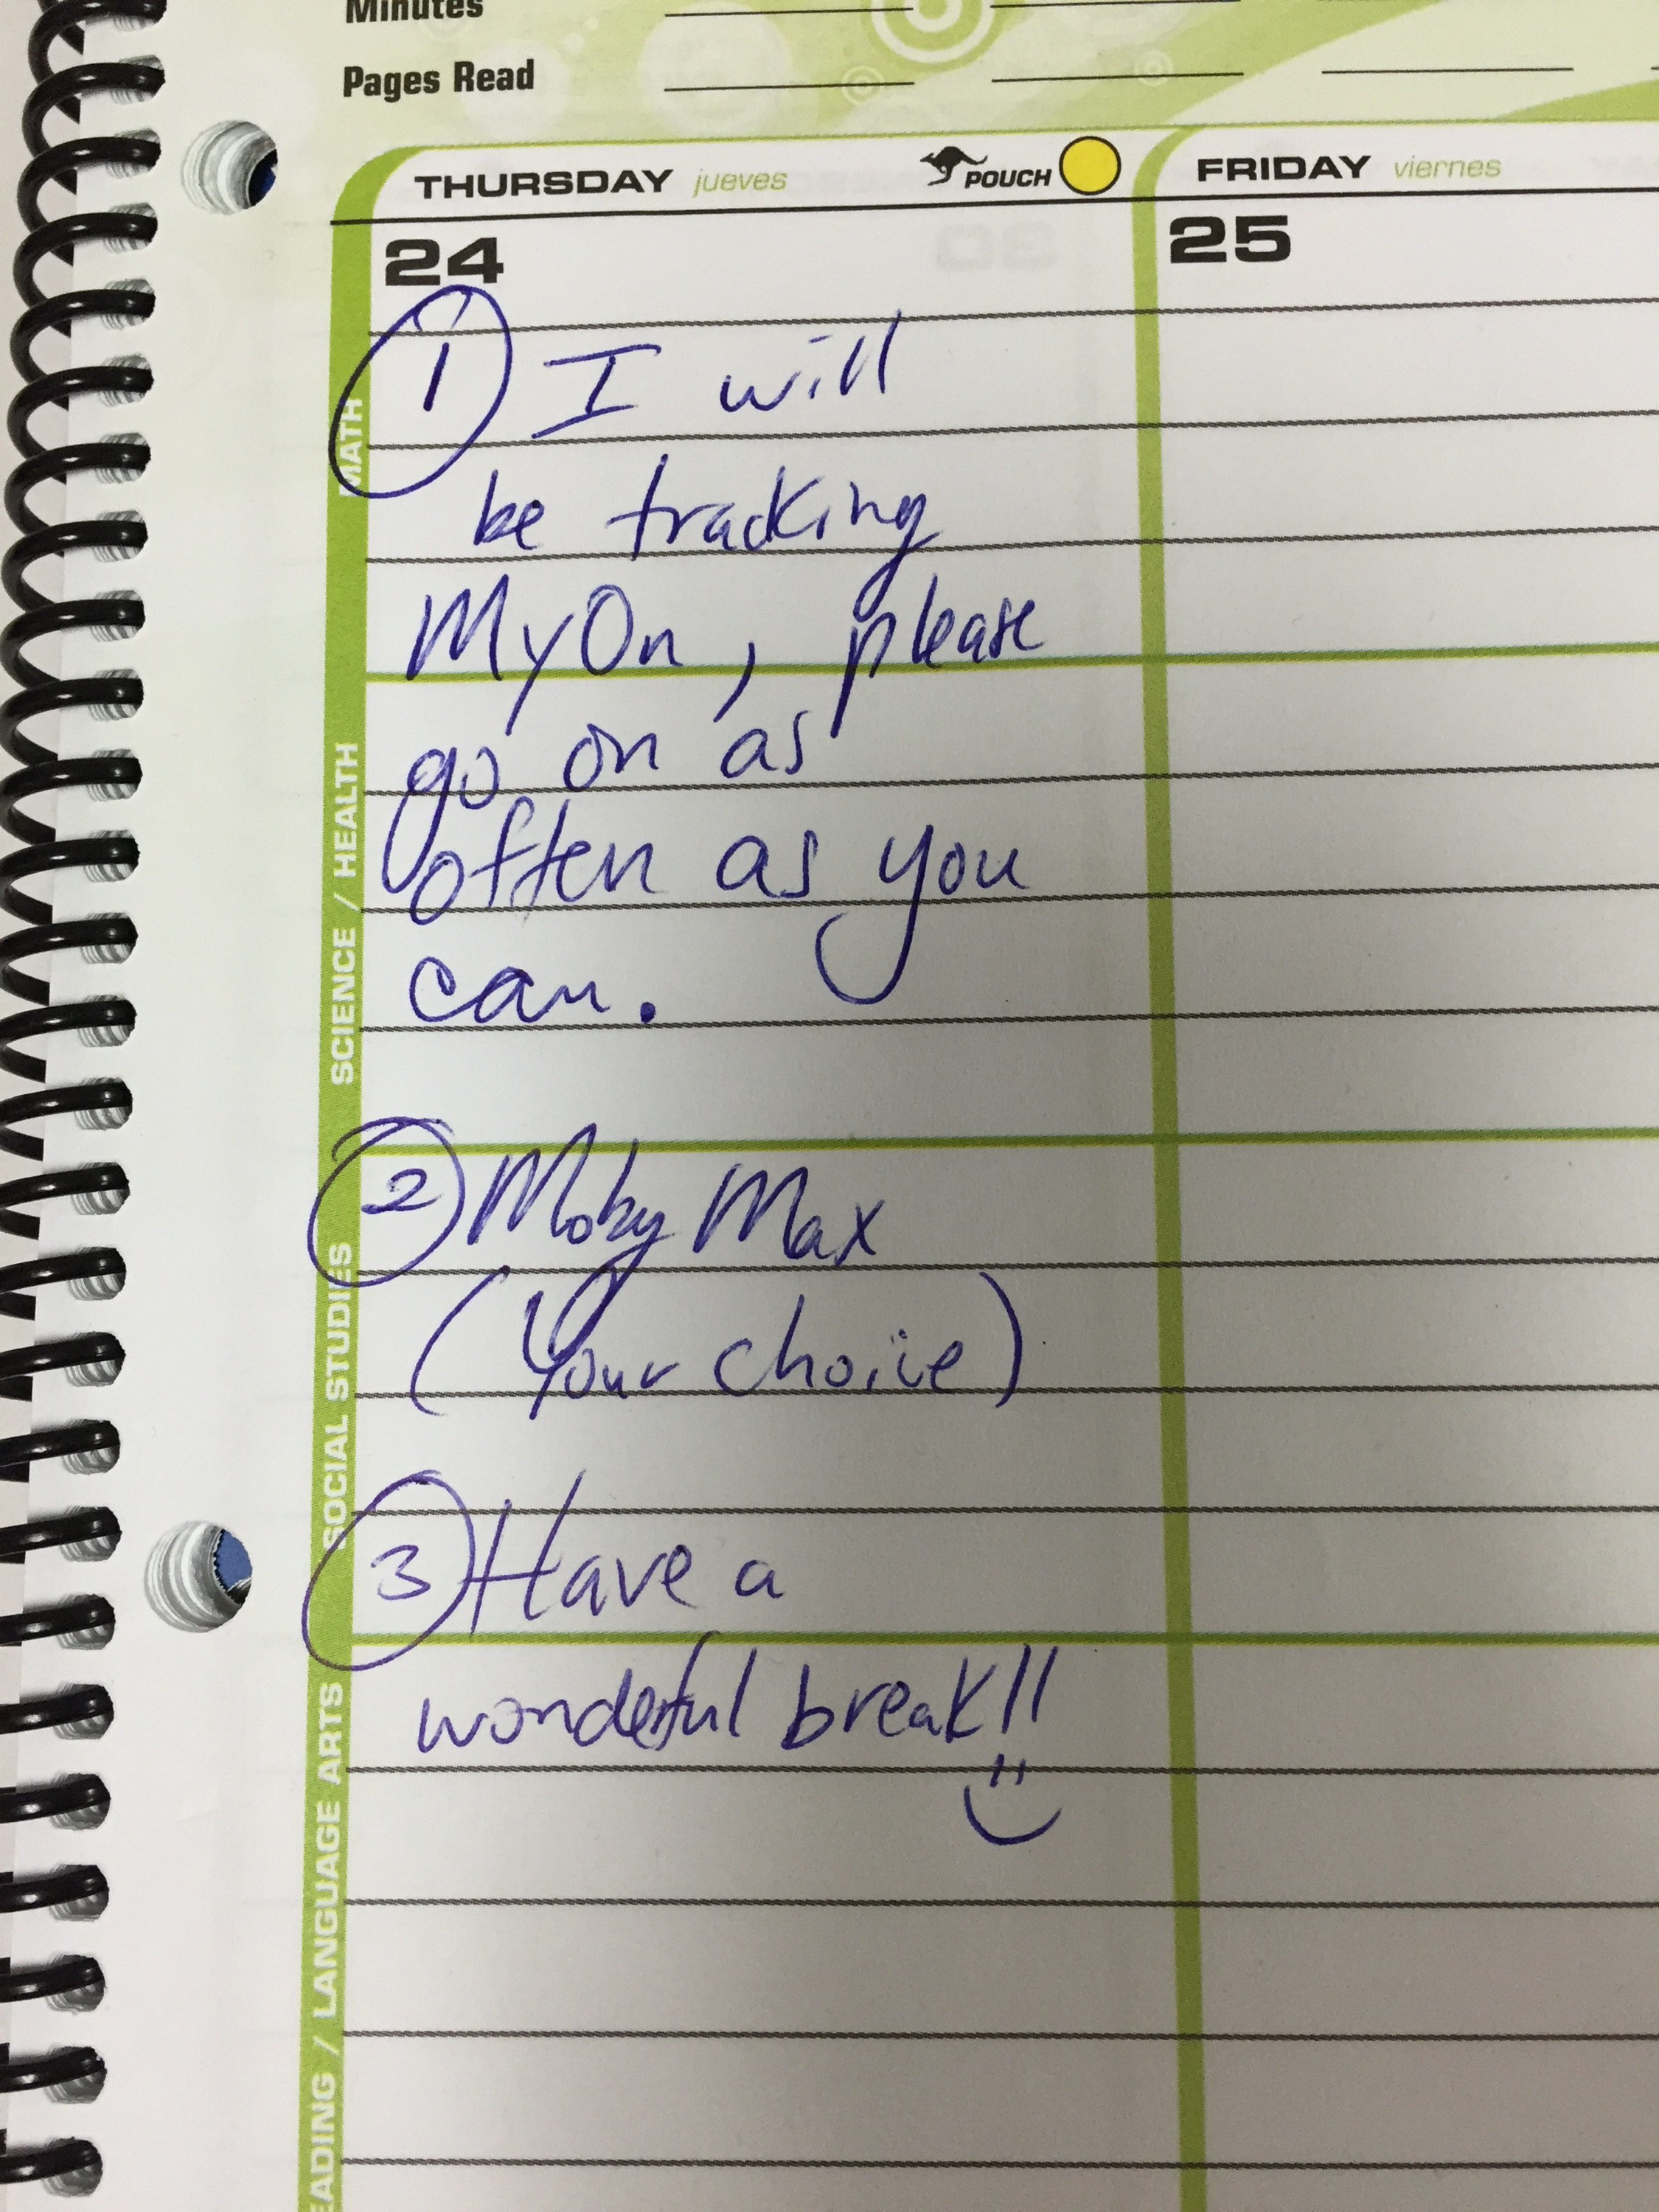 Minutes
Pages Read
THURSDAY jueves POUCH
24
1 I will
be tracking
MyOn, please
go on as
often as you
can.
2 Moby Max
(Your choice)
3 Have a
wonderful break!!
FRIDAY viernes
25
MATH
SCIENCE / HEALTH
SOCIAL STUDIES
EADING / LANGUAGE ARTS